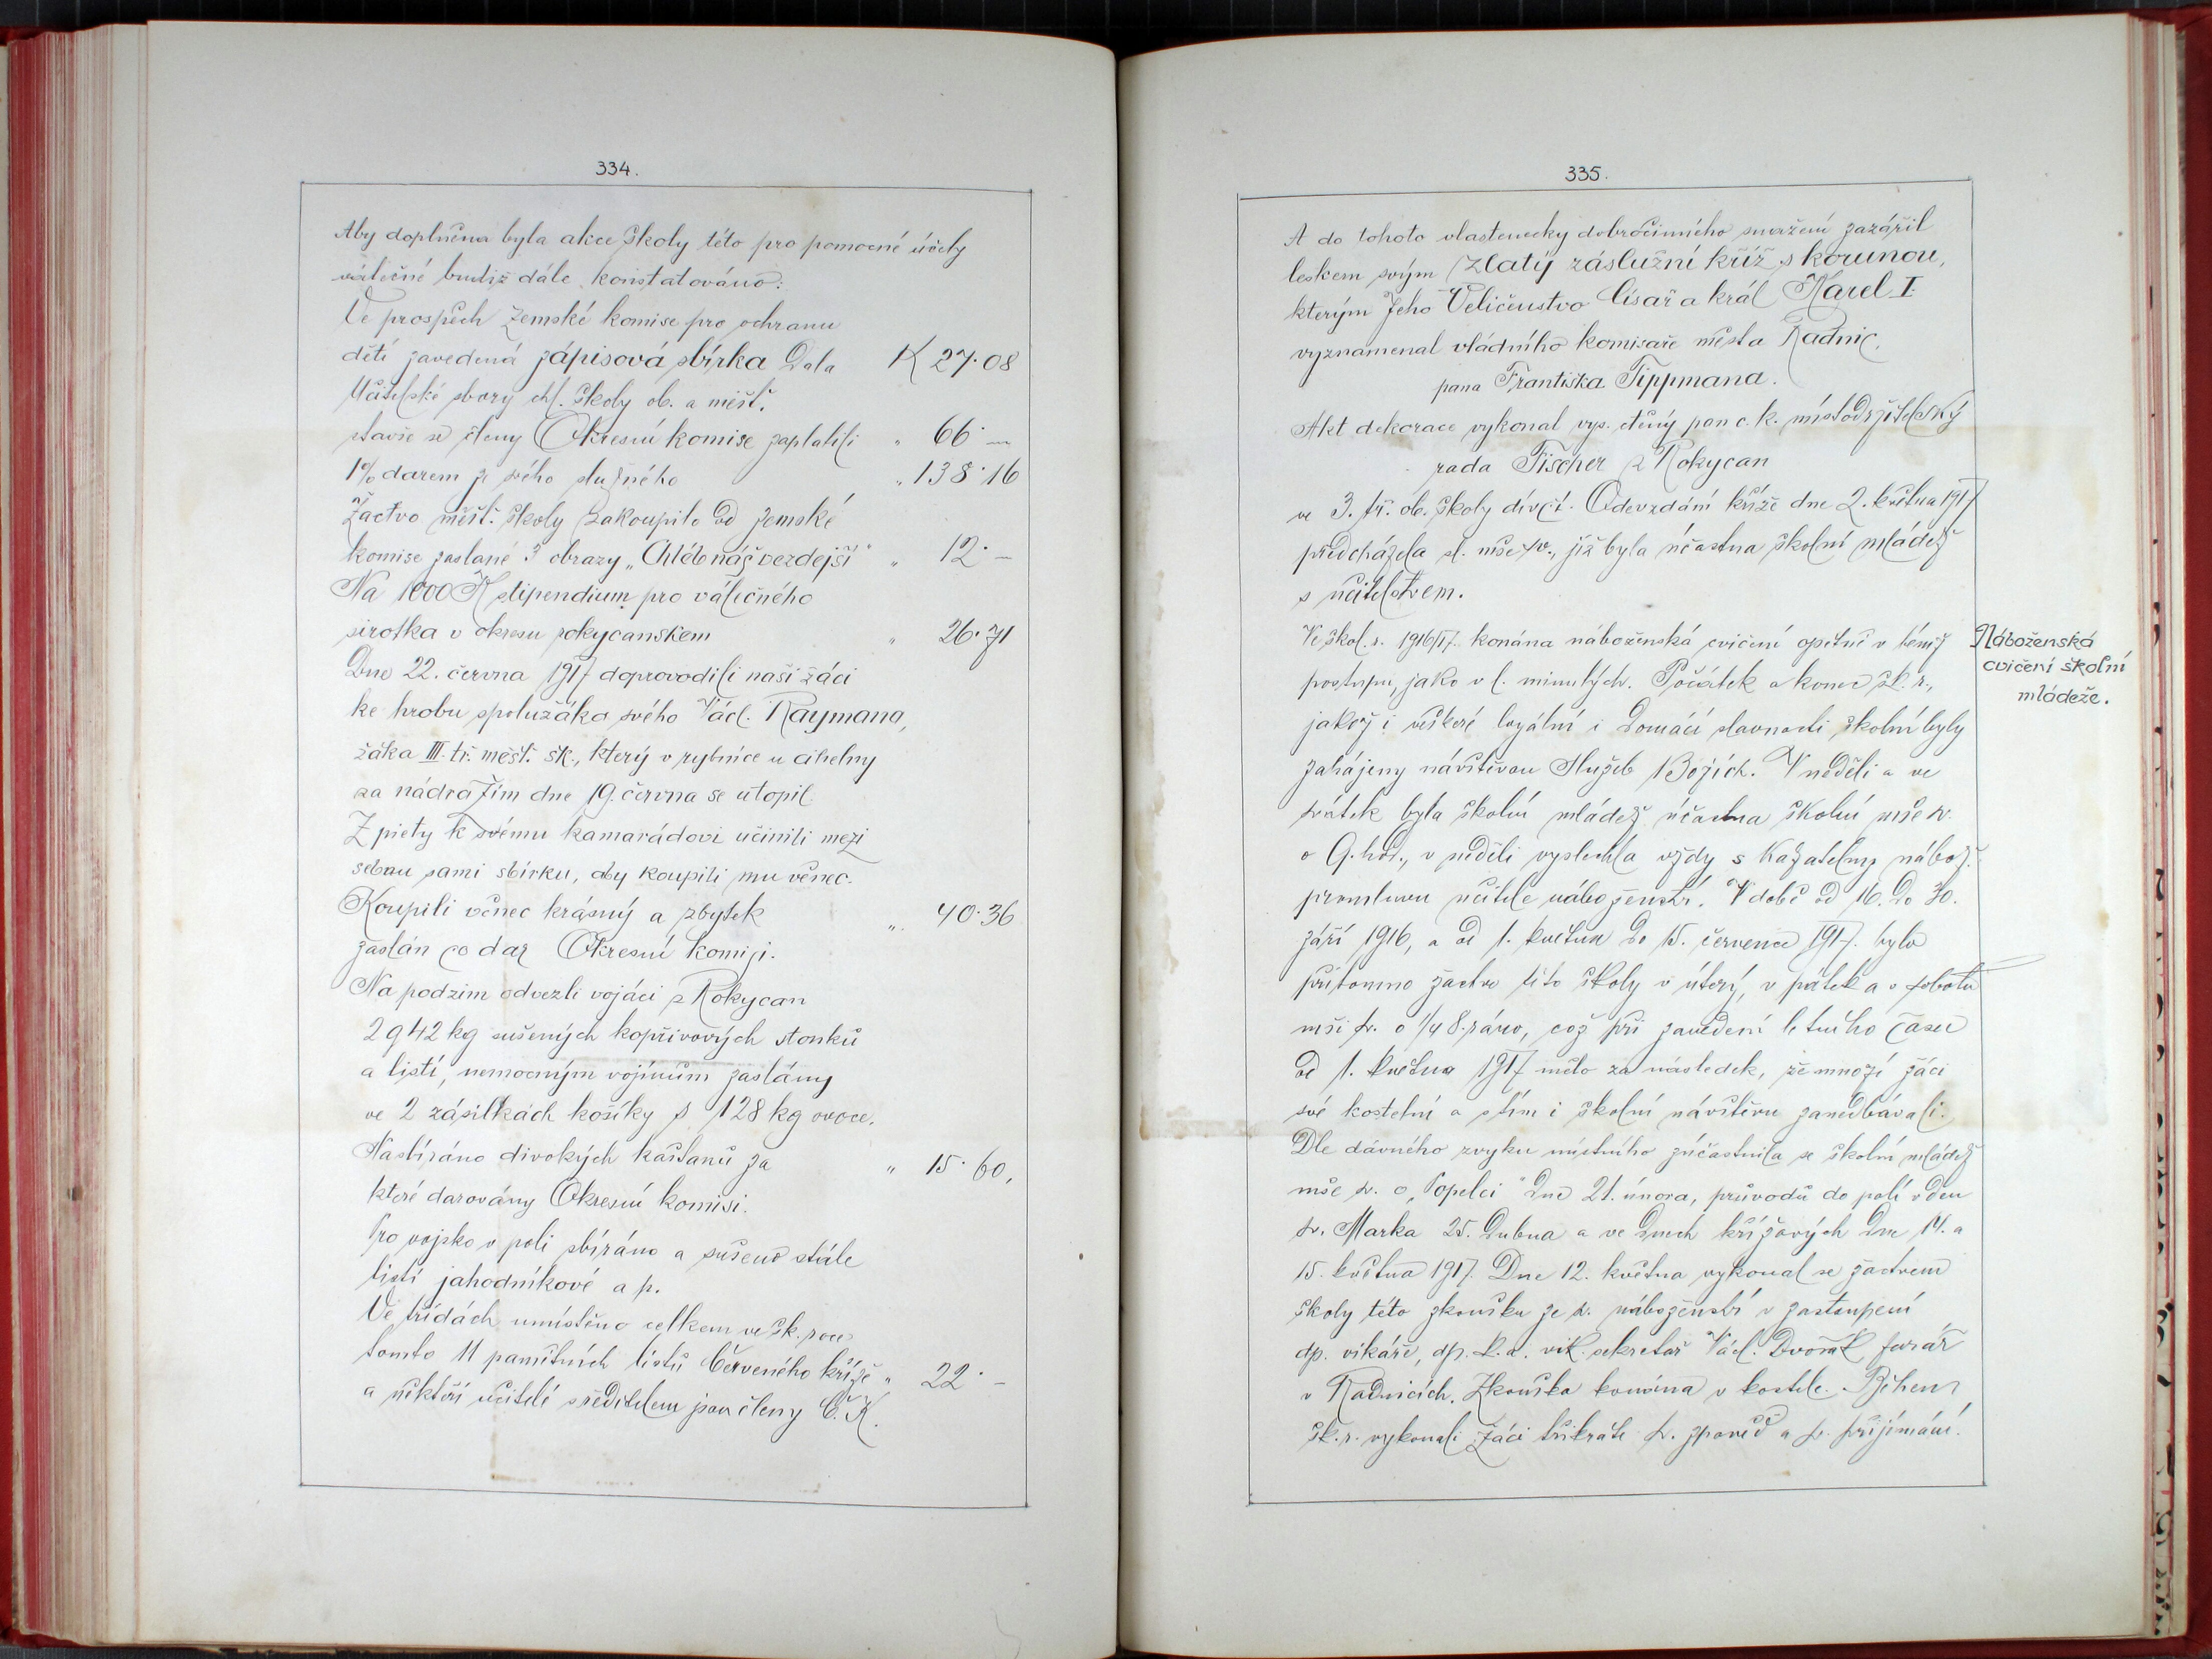 334.
Aby doplněna byla akce školy této pro pomocné účely
válečné budiž dále konstatováno:
Ve prospěch zemské komise pro ochranu
dětí zavedená zápisová sbírka dala K 27·08
Učitelské sbory zdl. školy ob. a měšť.
stavše se členy Okresní komise zaplatili " 66·—
1% darem ze svého služného " 138·16
Žactvo měšť. školy zakoupilo od zemské
komise zaslané 3 obrazy „Chléb náš vezdejší" " 12·—
Na 1000 K stipendium pro válečného
sirotka v okresu rokycanském " 26·71
Dne 22. června 1917 doprovodili naši žáci
ke hrobu spolužáka svého Václ. Raymana,
žáka III. tř. měšť. šk., který v rybníce u cihelny
za nádražím dne 19. června se utopil.
Z piety k svému kamarádovi učinili mezi
sebou sami sbírku, aby koupili mu věnec.
Koupili věnec krásný a zbytek " 40·36
zaslán co dar Okresní komisi.
Na podzim odvezli vojáci z Rokycan
2942 kg sušených kopřivových stonků
a listí, nemocným vojínům zaslány
ve 2 zásilkách košíky s 128 kg ovoce.
Nasbíráno divokých kaštanů za " 15·60,
které darovány Okresní komisi.
Pro vojsko v poli sbíráno a sušeno stále
listí jahodníkové a p.
Ve třídách umístěno celkem ve šk. roce
tomto 11 pamětních listů Červeného kříže " 22·—
a někteří učitelé s ředitelem jsou členy Č. K.
335.
A do tohoto vlastenecky dobročinného snažení zazářil
leskem svým Zlatý záslužní kříž s korunou,
kterým Jeho Veličenstvo Císař a král Karel I.
vyznamenal vládního komisaře města Radnic,
pana Františka Tippmana.
Akt dekorace vykonal vys. ctěný pan c. k. místodržitelský
rada Fischer z Rokycan
ve 3. tř. ob. školy dívčí. Odevzdání kříže dne 2. května 1917
předcházela sl. mše sv., jíž byla účastna školní mládež
s učitelstvem.
Ve škol. r. 1916/17. konána náboženská cvičení opětně v témž
postupu, jako v l. minulých. Počátek a konec šk. r.,
jakož i veškeré loyální i domácí slavnosti školní byly
zahájeny návštěvou Služeb Božích. V neděli a ve
svátek byla školní mládež účastna školní mše sv.
o 9. hod., v neděli vyslechla vždy s kazatelny nábož.
promluvu učitele náboženství. V době od 16. do 30.
září 1916, a od 1. května do 15. července 1917. bylo
přítomno žactvo této školy v úterý, v pátek a v sobotu
mši sv. o 1/4 8. ráno, což při zavedení letního času
od 1. května 1917 mělo za následek, že mnozí žáci
své kostelní a s tím i školní návštěvu zanedbávali.
Dle dávného zvyku místního zúčastnila se školní mládež
mše sv. o „Popelci" dne 21. února, průvodů do polí v den
sv. Marka 25. dubna a ve dnech křížových dne 14. a
15. května 1917. Dne 12. května vykonal se žactvem
školy této zkoušku ze sv. náboženství v zastoupení
dp. vikáře, dp. k. a. vik. sekretář Václ. Dvořák farář
v Radnicích. Zkouška konána v kostele. Během
šk. r. vykonali žáci třikráte sv. zpověď a sv. přijímání.
Náboženská
cvičení školní
mládeže.